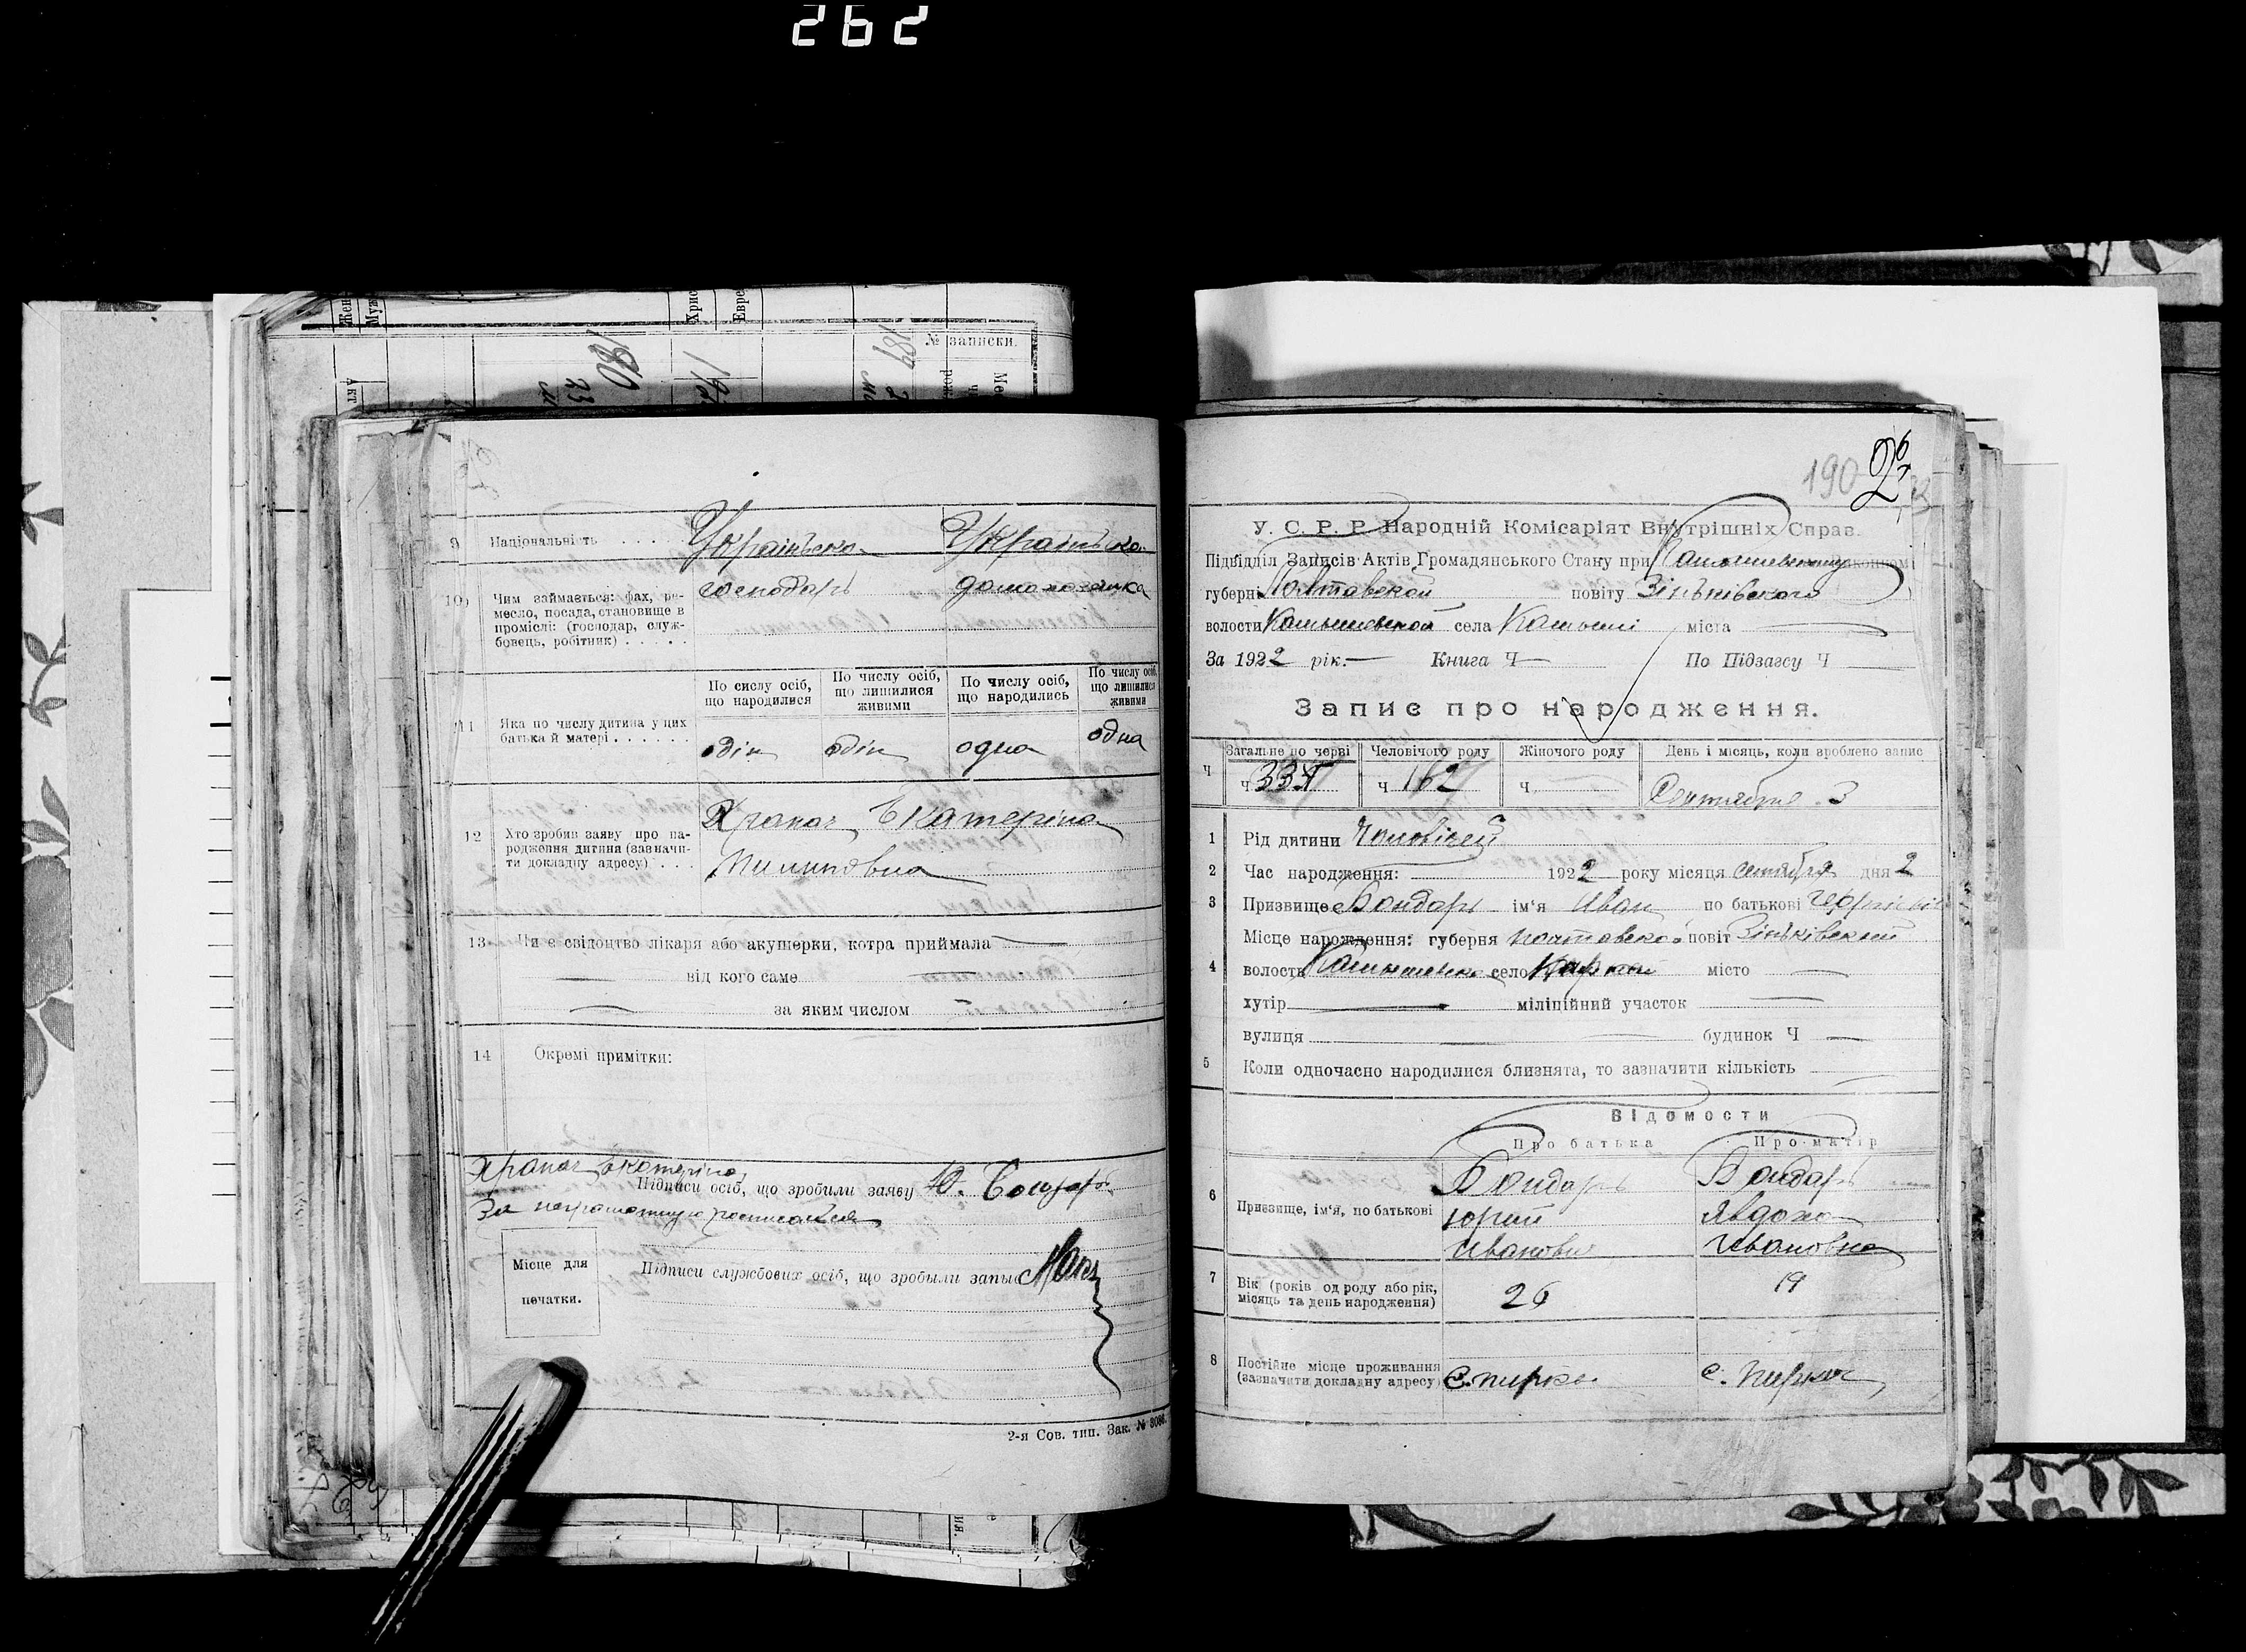 262
Жен
Муж
Хрис
Евре
№ записки.
187
180
23
Ме
9 Національність . . . . . Українська Українська
10) Чим займається: фах, ре- господарь домохозяйка
месло, посада, становище в
проміслі: (господар, служ-
бовець, робітник) . . . . .
По сислу осіб, що народилися
По числу осіб, що лишилися живими
По числу осіб, що народились
По числу осіб, що лишилися живими
11 Яка по числу дитина у цих батька й матері . . . . . .
одін одін одна одна
12 Хто зробив заяву про на-
родження дитина (зазначи-
ти докладну адресу) . . .
Храпач Екатеріна
Пилиповна
13 Чи є свідоцтво лікаря або акушерки, котра приймала —
— від кого саме —
— за яким числом
14 Окремі примітки:
Храпач Екатеріна
Підписи осіб, що зробили заяву Ю. Бондарь
За неграмотную росписался
Місце для
печатки.
Підписи службових осіб, що зробыли запыс
2-я Сов. тип. Зак. №
190
У. С. Р. Р. Народній Комісаріят Внутрішніх Справ.
Підвідділ Записів Актів Громадянського Стану при
губерні Полтавской повіту Зіньківского
волости Камышевской села Камыши міста —
За 1922 рік.— Книга Ч— По Підзагсу Ч
Запис про народження.
Загальне по черві Человічого роду Жіночого роду День і місяць, коли зроблено запис
Ч ч 337 ч 162 ч — Сентября 3
1 Рід дитини Чоловічей
2 Час народження: — 1922 року місяця сентября дня 2
3 Призвище Бондарь ім'я Иван по батькові
Місце нарождення: губерня полтавской повіт Зіньківский
4 волость село місто —
хутір — міліційний участок —
вулиця — будинок Ч —
5 Коли одночасно народилися близнята, то зазначити кількість —
Відомости
Про батька Про матір
6 Призвище, ім'я, по батькові
Бондарь Бондарь
Юрий Явдоха
Иванови Ивановна
7 Вік (років од роду або рік, 26 19
місяць та день народження)
8 Постійне місце проживання
(зазначити докладну адресу) с. пирки с. пирки